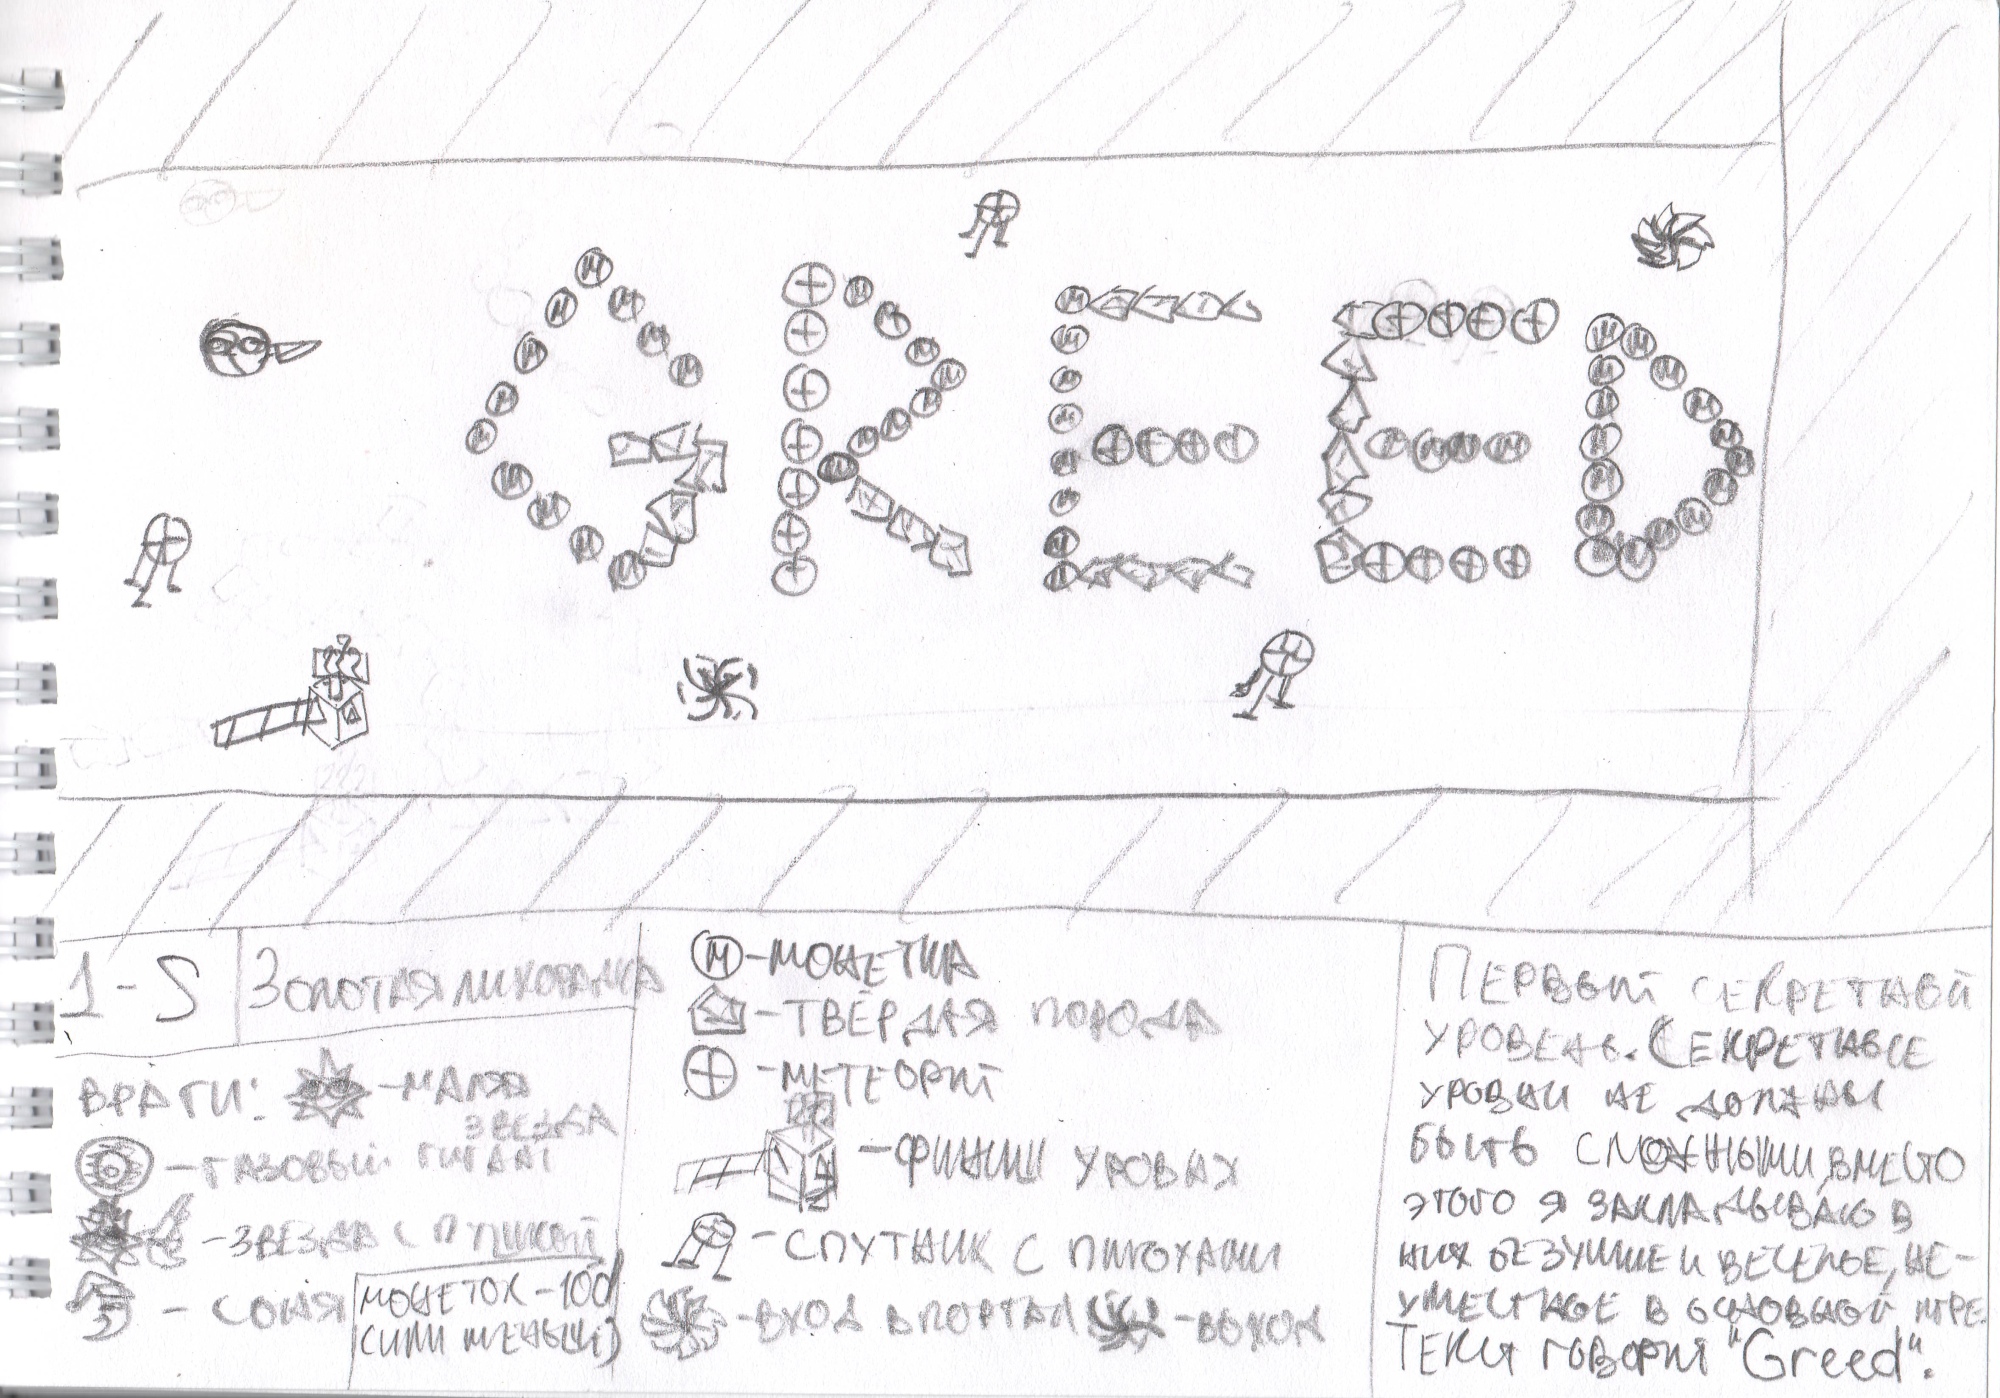 GREED
1-S
Золотая лихорадка
Враги:
-малая
звезда
-газовый гигант
-звезда с пушкой
- соня
монеток-100
(или меньше)
М-монетка
-твёрдая порода
-метеорит
-финиш уровня
-спутник с пирогами
-вход в портал
-выход
Первый секретный
уровень. Секретные
уровни не должны
быть сложными, вместо
этого я закладываю в
них безумие и веселье, не-
уместное в основной игре.
Текст говорит "Greed".